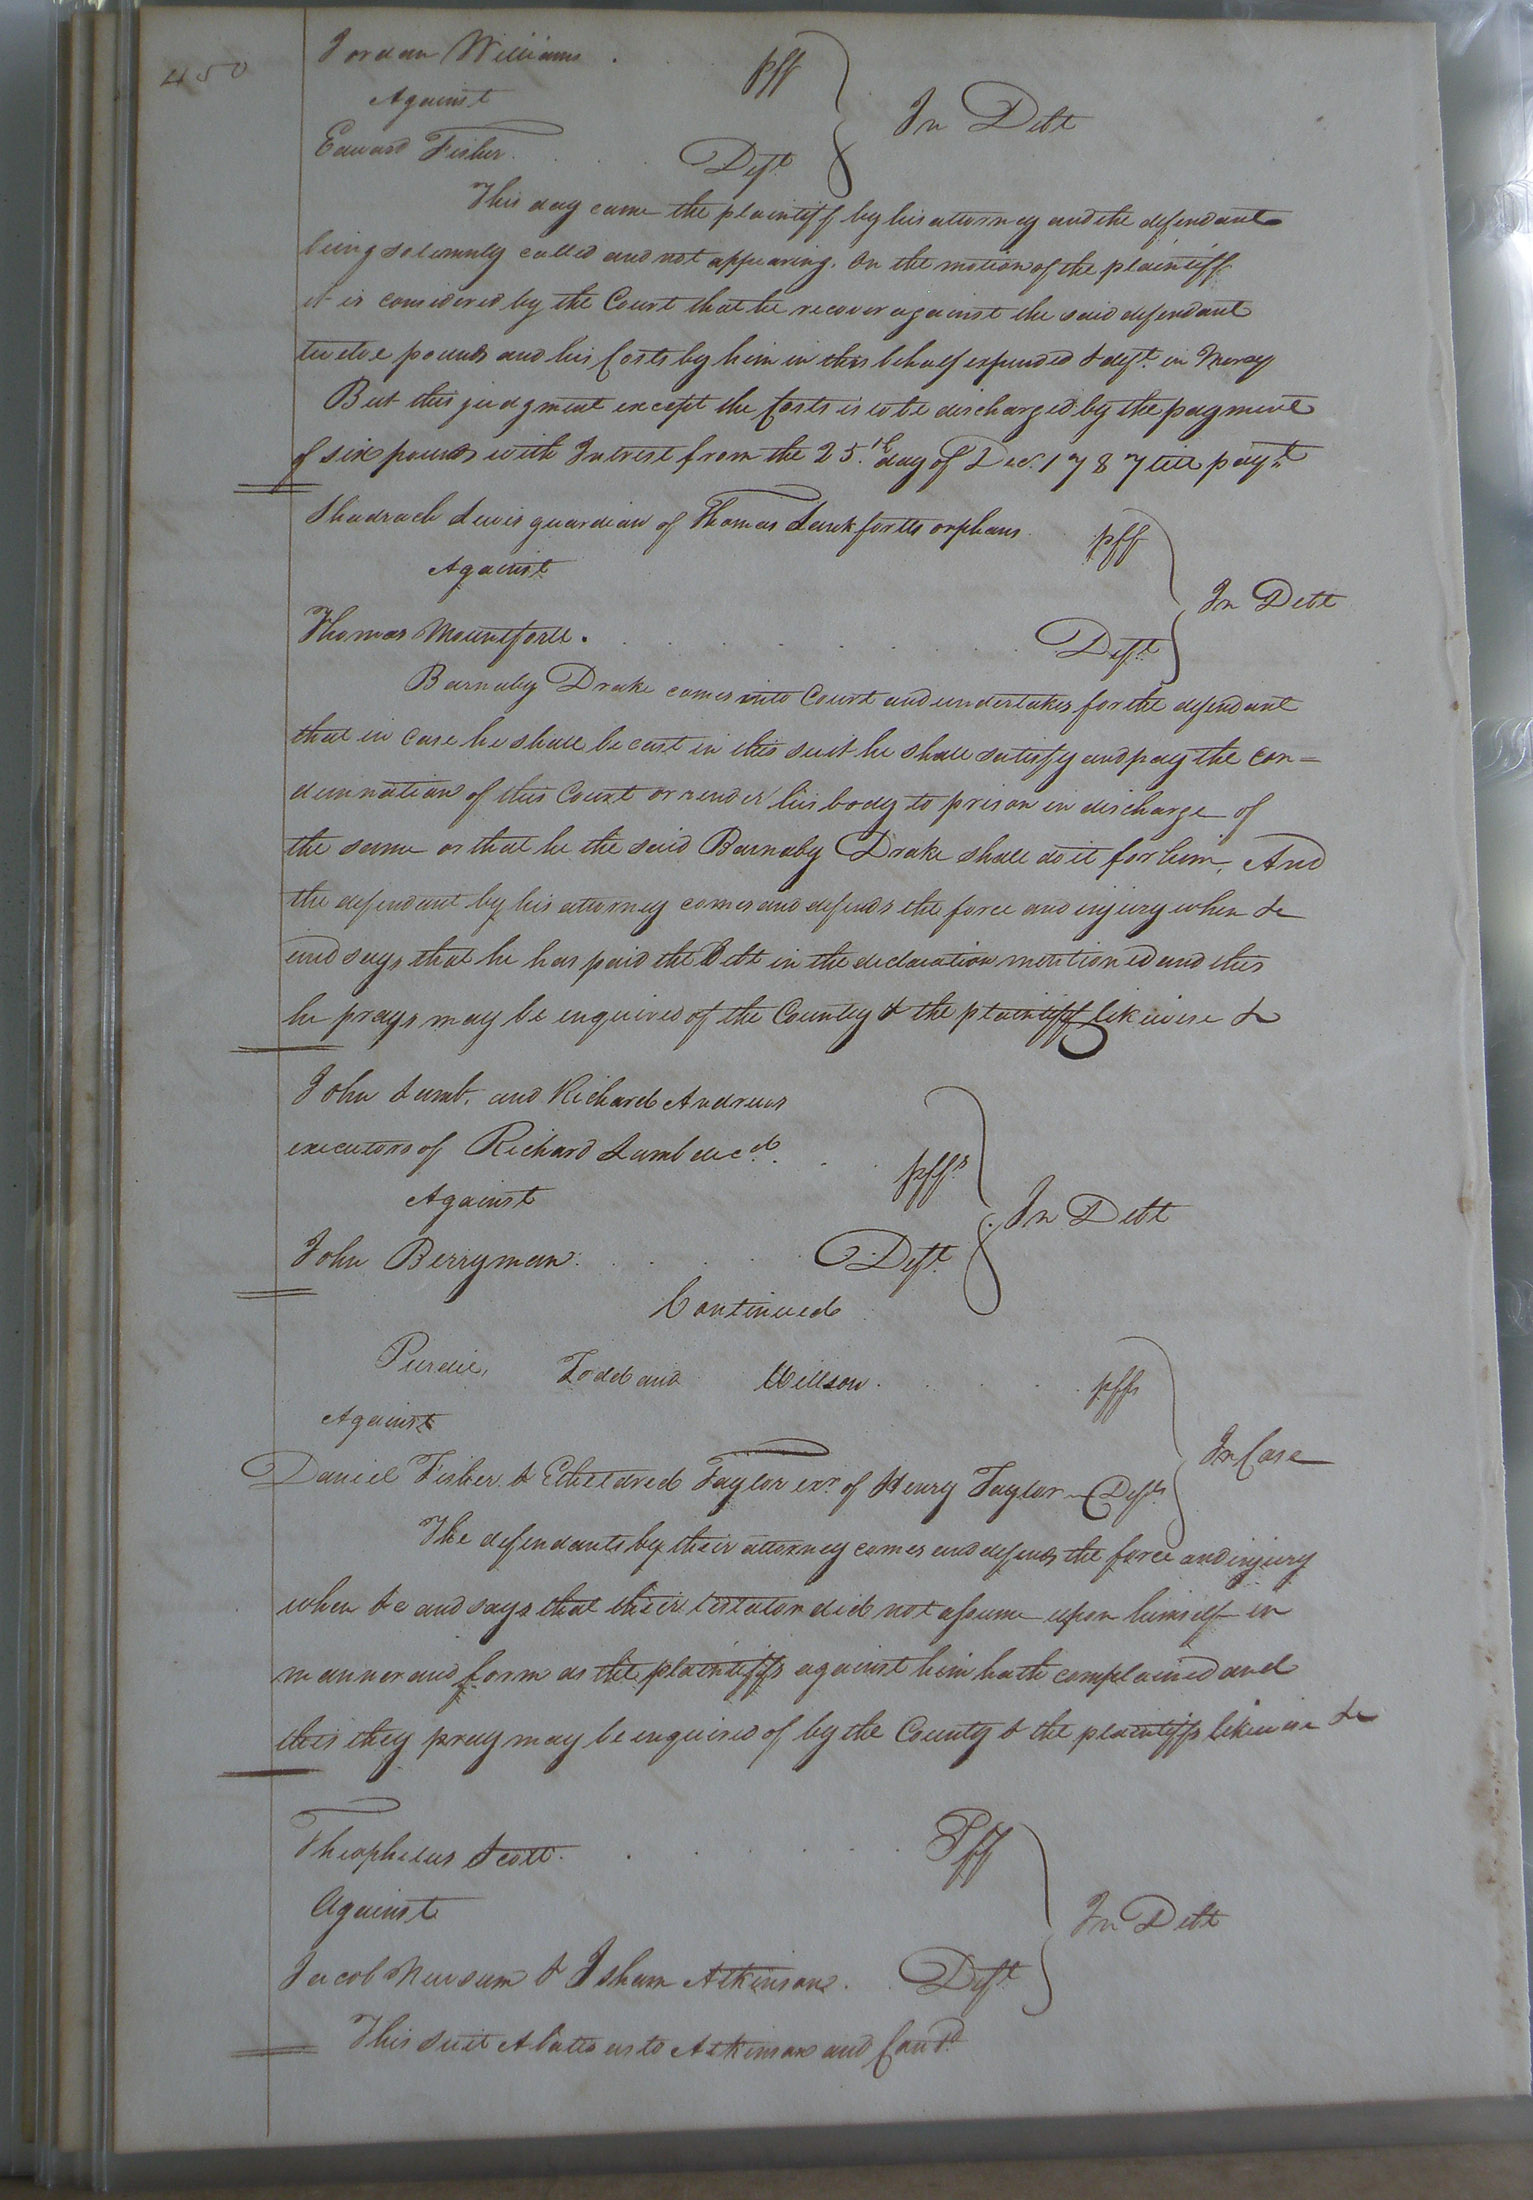 450
Jordan Williams . . . plff
Against
In Debt
Edward Fisher . . . Deft
This day came the plaintiff by his attorney and the defendant
being solemnly called and not appearing. On the motion of the plaintiff
it is considered by the Court that he recover against the said defendant
twelve pounds and his Costs by him in this behalf expended & deft. in Mercy
But this judgment except the Costs is to be discharged by the payment
of six pounds with Interest from the 25.th day of Dec. 1787 till paymt
Shadrach Lewis guardian of Thomas Lankfords orphans plff
Against
In Debt
Thomas Mountfort . . . Deft
Barnaby Drake comes into Court and undertakes for the defendant
that in case he shall be cast in this suit he shall satisfy and pay the con=
demnation of this Court or render his body to prison in discharge of
the same or that he the said Barnaby Drake shall do it for him. And
the defendant by his attorney comes and defends the force and injury when &c
and says that he has paid the Debt in the declaration mentioned and this
he prays may be enquired of the County & the plaintiff likewise &c
John Lamb, and Richard Andrews
executors of Richard Lamb decd. . . plffs
Against
In Debt
John Berryman . . . Deft
Continued
Purdie, Todd and Willson . . . plffs
Against
In Case
Daniel Fisher & Etheldred Taylor exr. of Henry Taylor Defts
The defendants by their attorney comes and defends the force and injury
when &c and says that their testator did not assume upon himself in
manner and form as the plaintiffs against him hath complained and
this they pray may be enquired of by the County & the plaintiffs likewise &c
Theophilus Scott . . . Plff
Against
In Debt
Jacob Newsum & Isham Atkinson . . Deft
This suit Abates as to Atkinson and Contd